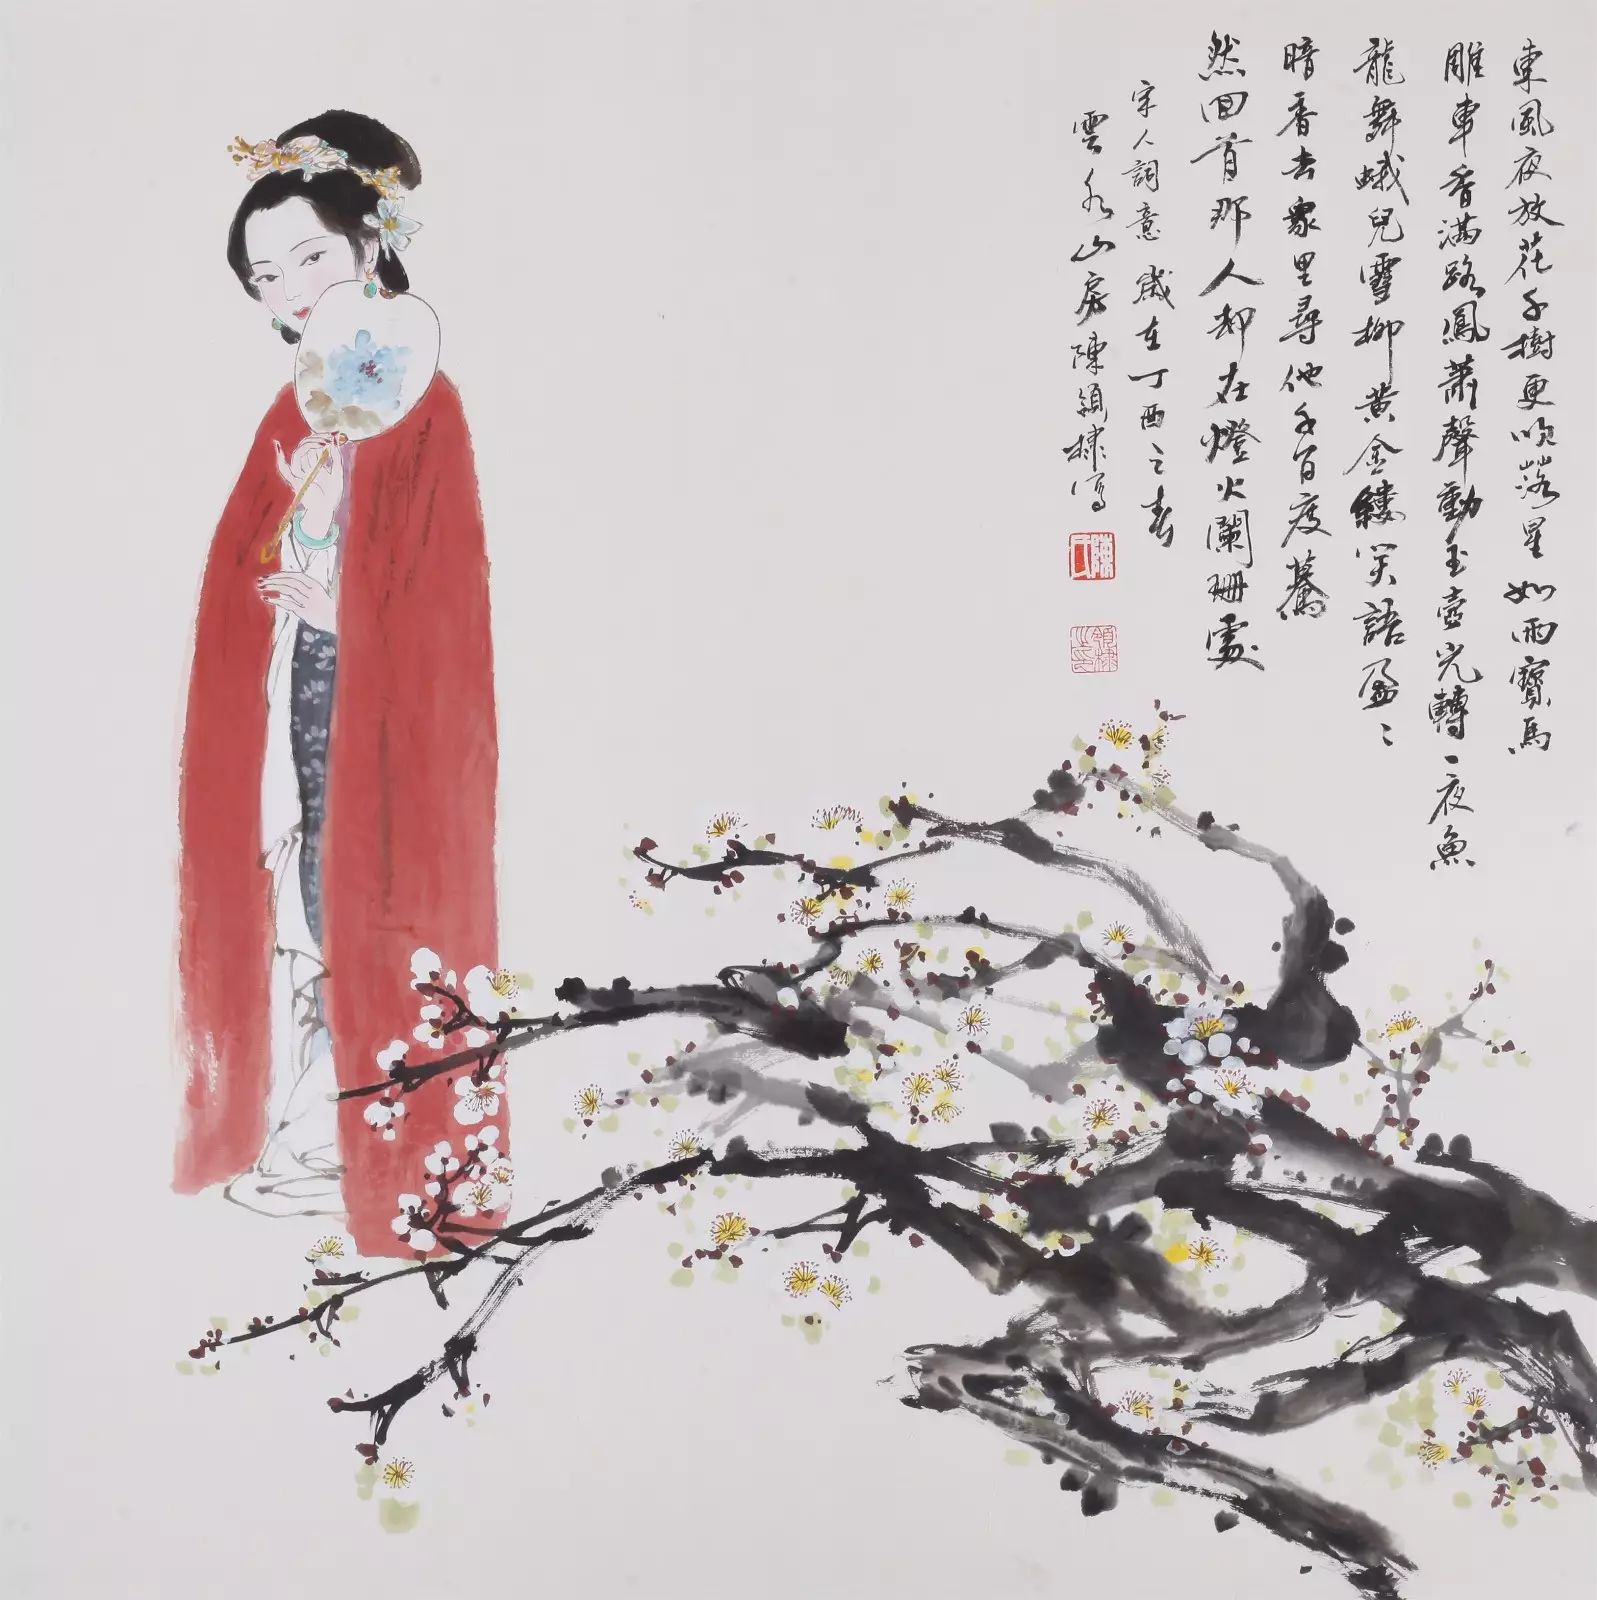 東風夜放花千樹更吹落星如雨寶馬
雕車香滿路鳳蕭聲動玉壺光轉一夜魚
龍舞蛾兒雪柳黃金縷笑語盈〻
暗香去眾里尋他千百度驀
然回首那人却在燈火闌珊處
宋人詞意 歲在丁酉之春
雲水山房陳領棣寫
陳氏
領棣之印